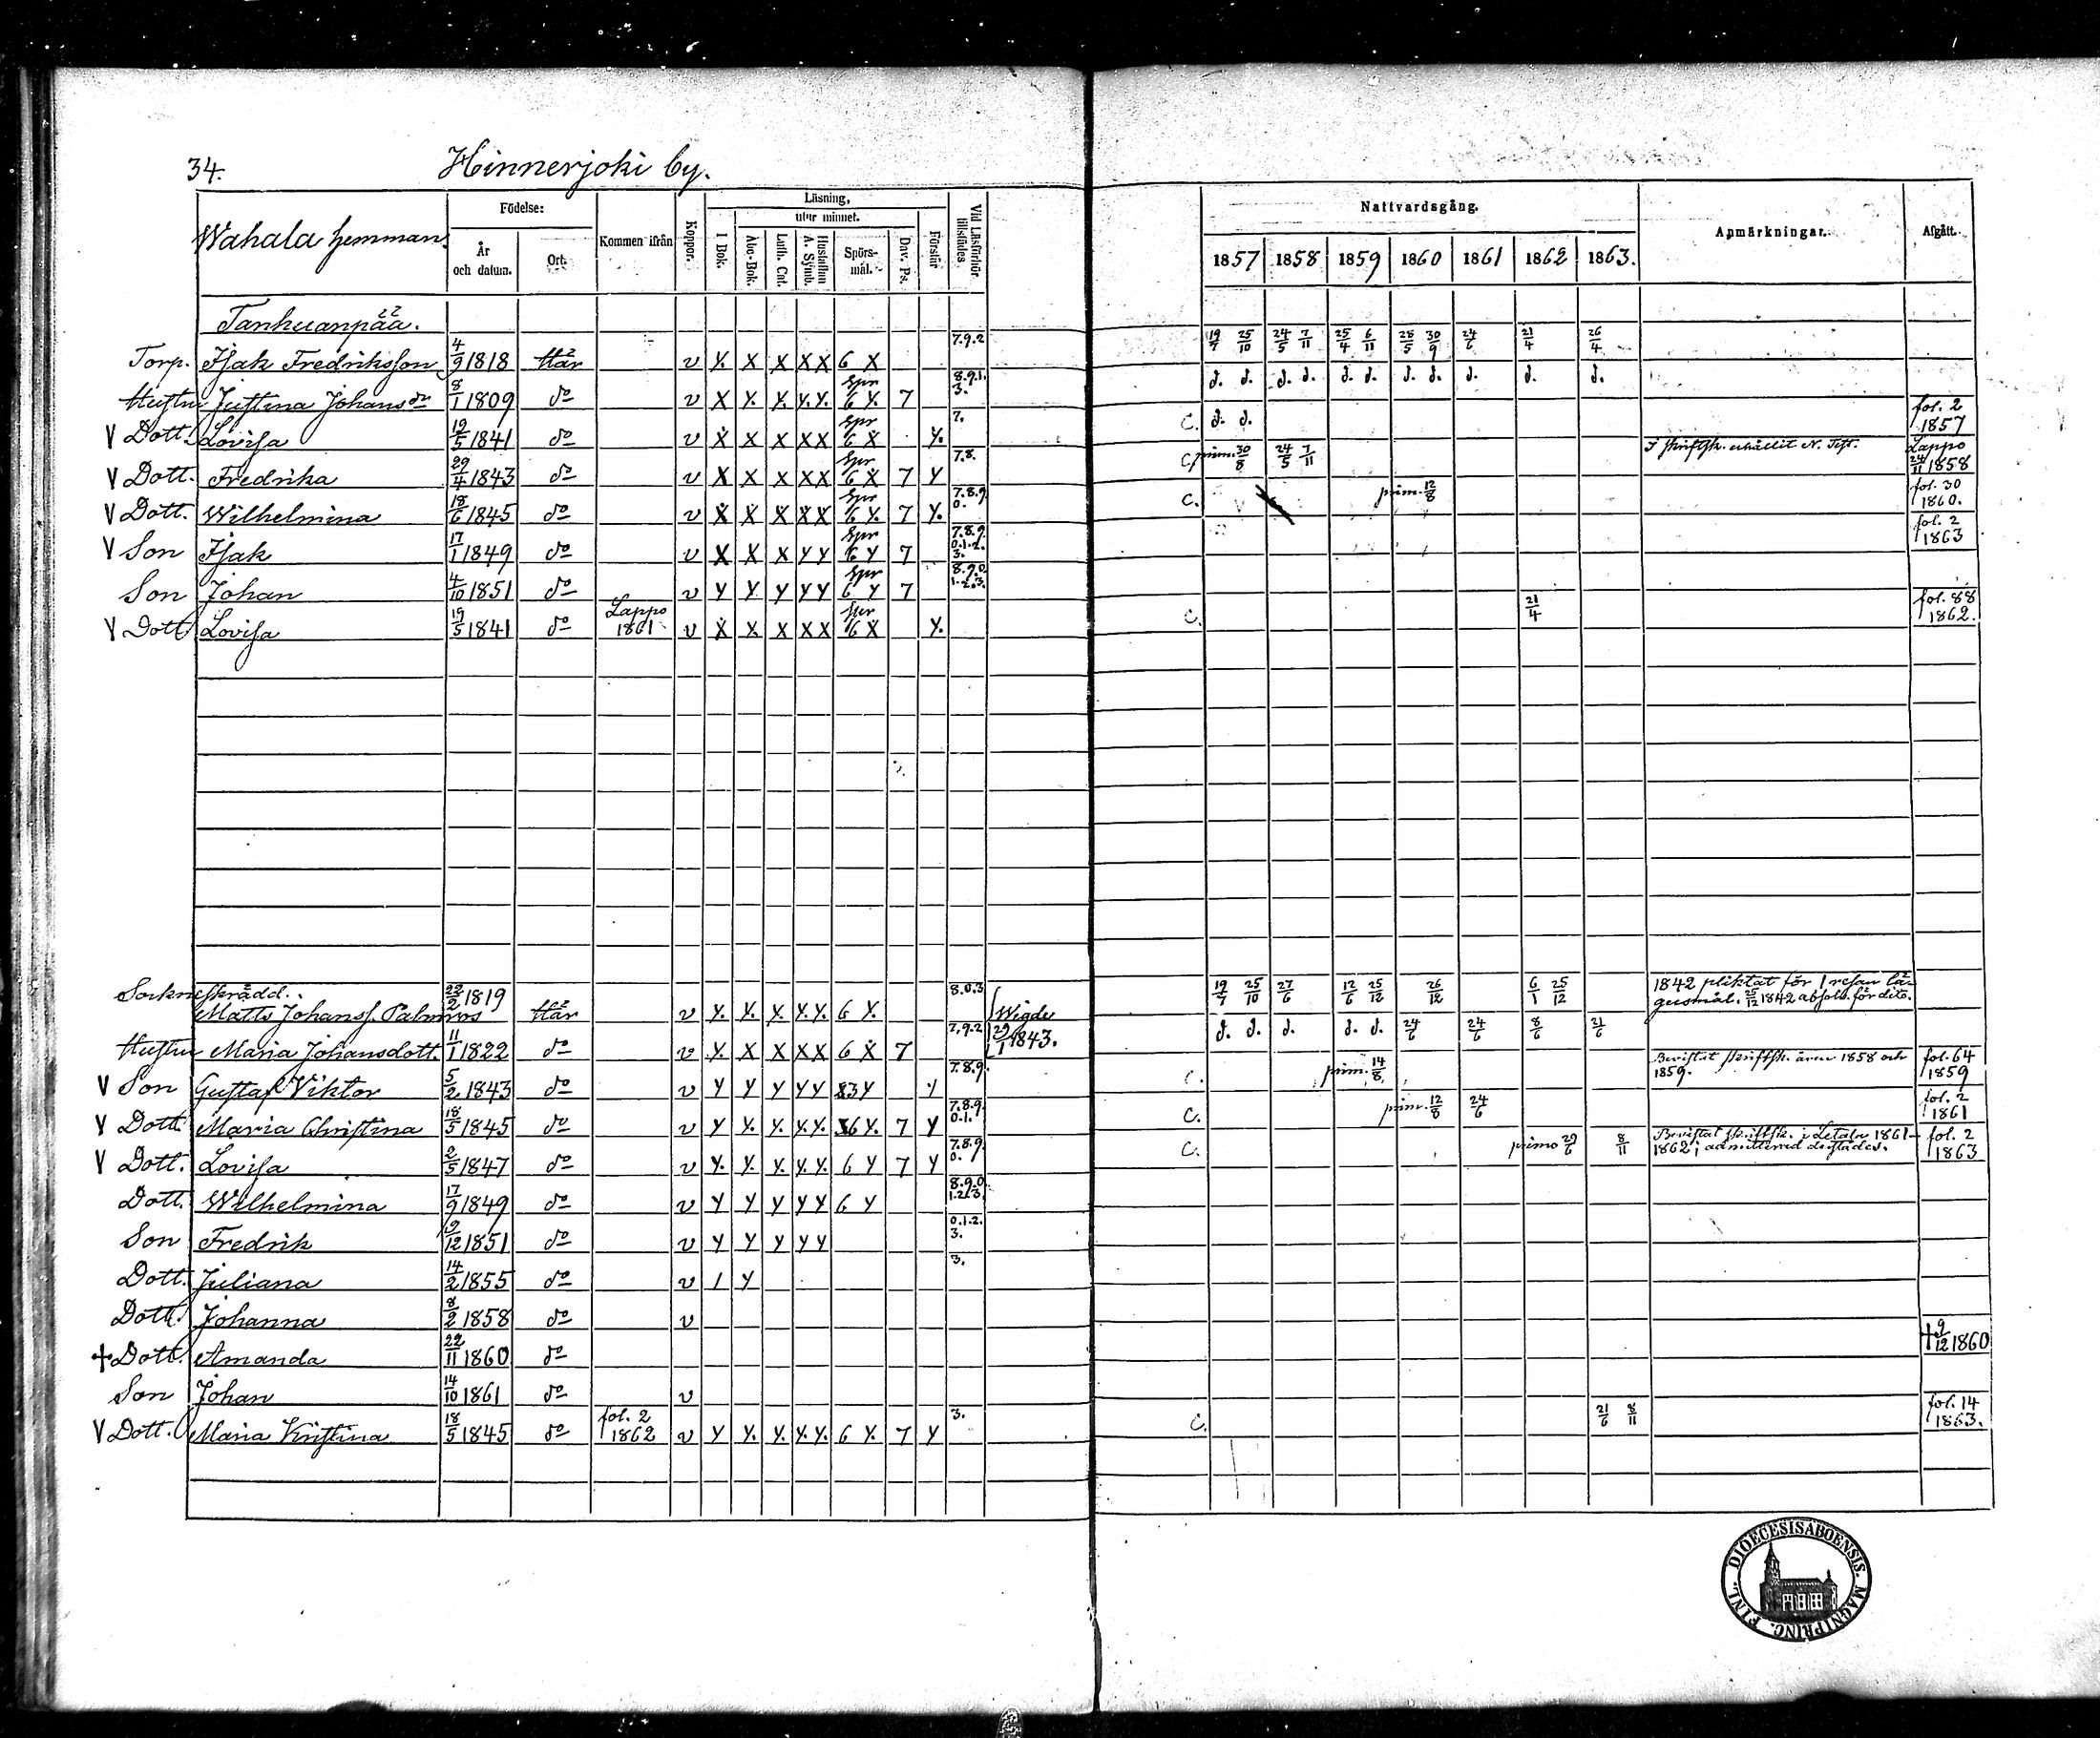 34. Hinnerjoki by.
Wahala hemman.
Födelse:
År och datum.
Ort.
Kommen ifrån
Koppor.
Läsning,
utur minnet.
I Bok.
Abc-Bok.
Luth. Cat.
Hustaflan A. Symb.
Spörs-mål.
Dav. Ps.
Förstår
Vid Läsförhör tillstädes
Nattvardsgång.
1857 1858 1859 1860 1861 1862 1863.
Anmärkningar.
Afgått.
Tankuanpää.
Torp. Isak Fredriksson 4/9 1818 Här v Y. X X X X 6 X 7.9.2 19/7 25/10 24/5 7/11 25/4 6/11 28/5 30/9 24/6 21/4 26/4
Hustru Justina Johansdr 8/1 1809 do v X Y. Y. Y. Y. Spr 6 Y. 7 8.9.1.3. d. d. d. d. d. d. d. d. d. d. d.
V Dott. Lovisa 19/5 1841 do v X X X X X Spr 6 X Y. 7. C. d. d. fol. 2 1857
V Dott. Fredrika 29/4 1843 do v X X X X X Spr 6 X 7 Y 7.8. C. prim. 30/8 24/5 7/11 I skriftsk. erhållit N. Test. Lappo 24/11 1858
V Dott. Wilhelmina 18/6 1845 do v X X X X X Spr 6 Y. 7 Y. 7.8.9.0. C. prim. 12/8 fol. 30 1860.
V Son Isak 17/1 1849 do v X X X Y Y Spr 6 Y 7 7.8.9.0.1.2.3. fol. 2 1863
Son Johan 4/10 1851 do v Y Y Y Y Y Spr 6 Y 7 8.9.0.1.2.3.
V Dott Lovisa 19/5 1841 do Lappo 1861 v X X X X X Spr 6 X Y. C. 21/4 fol. 88 1862.
Sockneskrädd.
Matts Johanss. Palmros 22/2 1819 Här v Y. Y. Y. Y. Y. 6 Y. 8.0.3 Wigde 29/1 1843. 19/7 25/10 27/6 12/6 25/12 26/12 6/1 25/12 1842 pliktat för 1 resan lägersmål. 25/12 1842 absolv. för dito.
Hustru Maria Johansdott. 11/1 1822 do v Y. X X X X 6 X 7 7.9.2 d. d. d. d. d. 24/6 24/6 8/6 21/6
V Son Gustaf Viktor 5/2 1843 do v Y Y Y Y Y 3 Y Y 7.8.9. C. prim. 14/8 Bevistat skriftsk. åren 1858 och 1859. fol. 64 1859
V Dott. Maria Christina 18/5 1845 do v Y Y. Y. Y. Y. 6 Y. 7 Y 7.8.9.0.1. C. prim. 12/8 24/6 fol. 2 1861
V Dott. Lovisa 2/5 1847 do v Y. Y. Y. Y. Y. 6 Y 7 Y 7.8.9.0. C. primo 29/6 8/11 Bevistat skriftsk. i Letala 1861-1862; admitterad derstädes. fol. 2 1863
Dott. Wilhelmina 17/9 1849 do v Y Y Y Y Y 6 Y 8.9.0.1.2.3.
Son Fredrik 9/12 1851 do v Y Y Y Y Y 0.1.2.3.
Dott. Juliana 14/2 1855 do v 1 Y 3.
Dott. Johanna 8/2 1858 do v
+ Dott. Amanda 22/11 1860 do + 9/12 1860
Son Johan 14/10 1861 do v
V Dott. Maria Kristina 18/5 1845 do fol. 2 1862 v Y Y. Y. Y. Y. 6 Y. 7 Y 3. C. 21/6 8/11 fol. 14 1863.
DIOECESIS ABOENSIS. MAGNI PRINC. FINL.